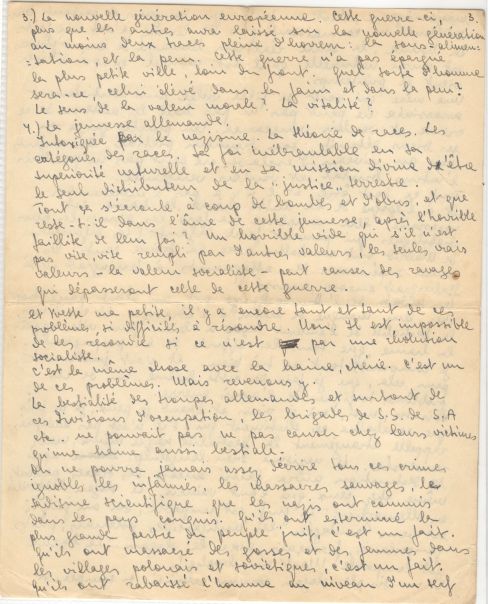 3.) La nouvelle génération européenne. Cette guerre-ci, 3.
plus que les autres aura laissé sur la nouvelle génération
au moins deux traces pleine d'horreur: la sous-alimen-
-tation, et la peur. Cette guerre n'a pas épargné
la plus petite ville, loin du front. Quel sorte d'homme
sera-ce, celui élevé dans la faim et dans la peur?
Le sens de la valeur morale? La vitalité?
4.) La jeunesse allemande.
Intoxiquée par le nazisme. La théorie de races. Les
catégories des races. Sa foi inébranlable en sa
superiorité naturelle et en sa mission divine d'être
le seul distributeur de la "justice" terrestre.
Tout ça s'écroule à coup de bombes et d'obus, et que
reste-t-il dans l'âme de cette jeunesse, après l'horrible
faillite de leur foi? Un horrible vide qui s'il n'est
pas vite, vite rempli par d'autres valeurs, les seules vrais
valeurs - la valeur socialiste - peut causer des ravages
qui dépasseront celle de cette guerre.
et ma petite, il y a encore tant et tant de ces
problèmes, si difficiles à résoudre. Non. Il est impossible
de les resoudre si ce n'est par une révolution
socialiste.
C'est la même chose avec la haine, chérie. C'est un
de ces problèmes. Mais revenons y.
La bestialité des troupes allemandes et surtout de
ces divisions d'occupation, les brigades de S.S. de S.A
etc. ne pouvait pas ne pas causer chez leurs victimes
qu'une haine aussi bestiale.
On ne pourra jamais assez décrire tous ces crimes
ignobles, les infamies, les massacres sauvages, le
sadisme scientifique que les nazis ont commis
dans les pays conquis. Qu'ils ont exterminé la
plus grande partie du peuple juif, c'est un fait.
Qu'ils ont massacré des gosses et des femmes dans
les villages polonais et soviétiques, c'est un fait.
Qu'ils ont rabaissé l'homme au niveau d'un serf